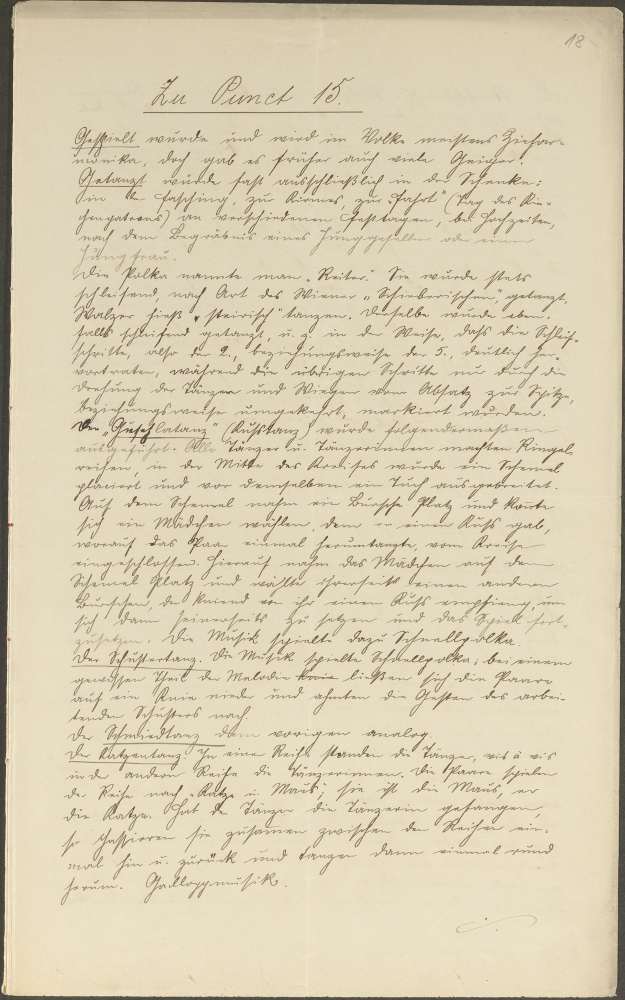 18
Zu Punct 15.
Gespielt wurde und wird im Volke meistens Ziehar-
monika, doch gab es früher auch viele Geiger.
Getanzt wurde fast ausschließlich in der Schenke:
im Fasching, zu Kirmes, zur „Fahrt" (Tag des Kir-
chenpatrons) an verschiedenen Festtagen, bei Hochzeiten,
nach dem Begräbnis eines Junggesellen oder einer
Jungfrau.
Die Polka nannte man „Reiter." Sie wurde stets
schleifend, nach Art des Wiener „Schieberischen", getanzt.
Walzer hieß „steirisch" tanzen. Derselbe wurde eben-
falls schleifend getanzt, u. z. in der Weise, daß die Schleif-
schritte, also der 2., beziehungsweise der 5., deutlich her-
vortraten, während die übrigen Schritte nur durch die
Drehung der Tänzer und Wiegen vom Absatz zur Spitze,
beziehungsweise umgekehrt, markiert wurden.
Der „Guschlatanz" (Kußtanz) wurde folgendermaßen
ausgeführt. Alle Tänzer u. Tänzerinnen machten Ringel-
reihen, in der Mitte des Kreises wurde ein Schemel
placiert und vor demselben ein Tuch ausgebreitet.
Auf dem Schemel nahm ein Bursche Platz und konnte
sich ein Mädchen wählen, dem er einen Kuß gab,
worauf das Paar einmal herumtanzte, vom Kreise
eingeschlossen. Hierauf nahm das Mädchen auf dem
Schemel Platz und wählte ihrerseits einen anderen
Burschen, der kniend von ihr einen Kuß empfieng, um
sich dann seinerseits zu setzen und das Spiel fort-
zusetzen. Die Musik spielte dazu Schnellpolka.
Der Schustertanz. Die Musik spielte Schnellpolka; bei einem
gewissen Theil der Melodie ließen sich die Paare
auf ein Knie nieder und ahmten die Gesten des arbei-
tenden Schusters nach.
Der Schmiedtanz dem vorigen analog.
Der Katzentanz. In einer Reihe standen die Tänzer, vis à vis
in der anderen Reihe die Tänzerinnen. Die Paare spielen
der Reihe nach „Katze u. Maus; sie ist die Maus, er
die Katze. Hat der Tänzer die Tänzerin gefangen,
so chassieren sie zusammen zwischen den Reihen ein-
mal hin u. zurück und tanzen dann einmal rund
herum. Galloppmusik.